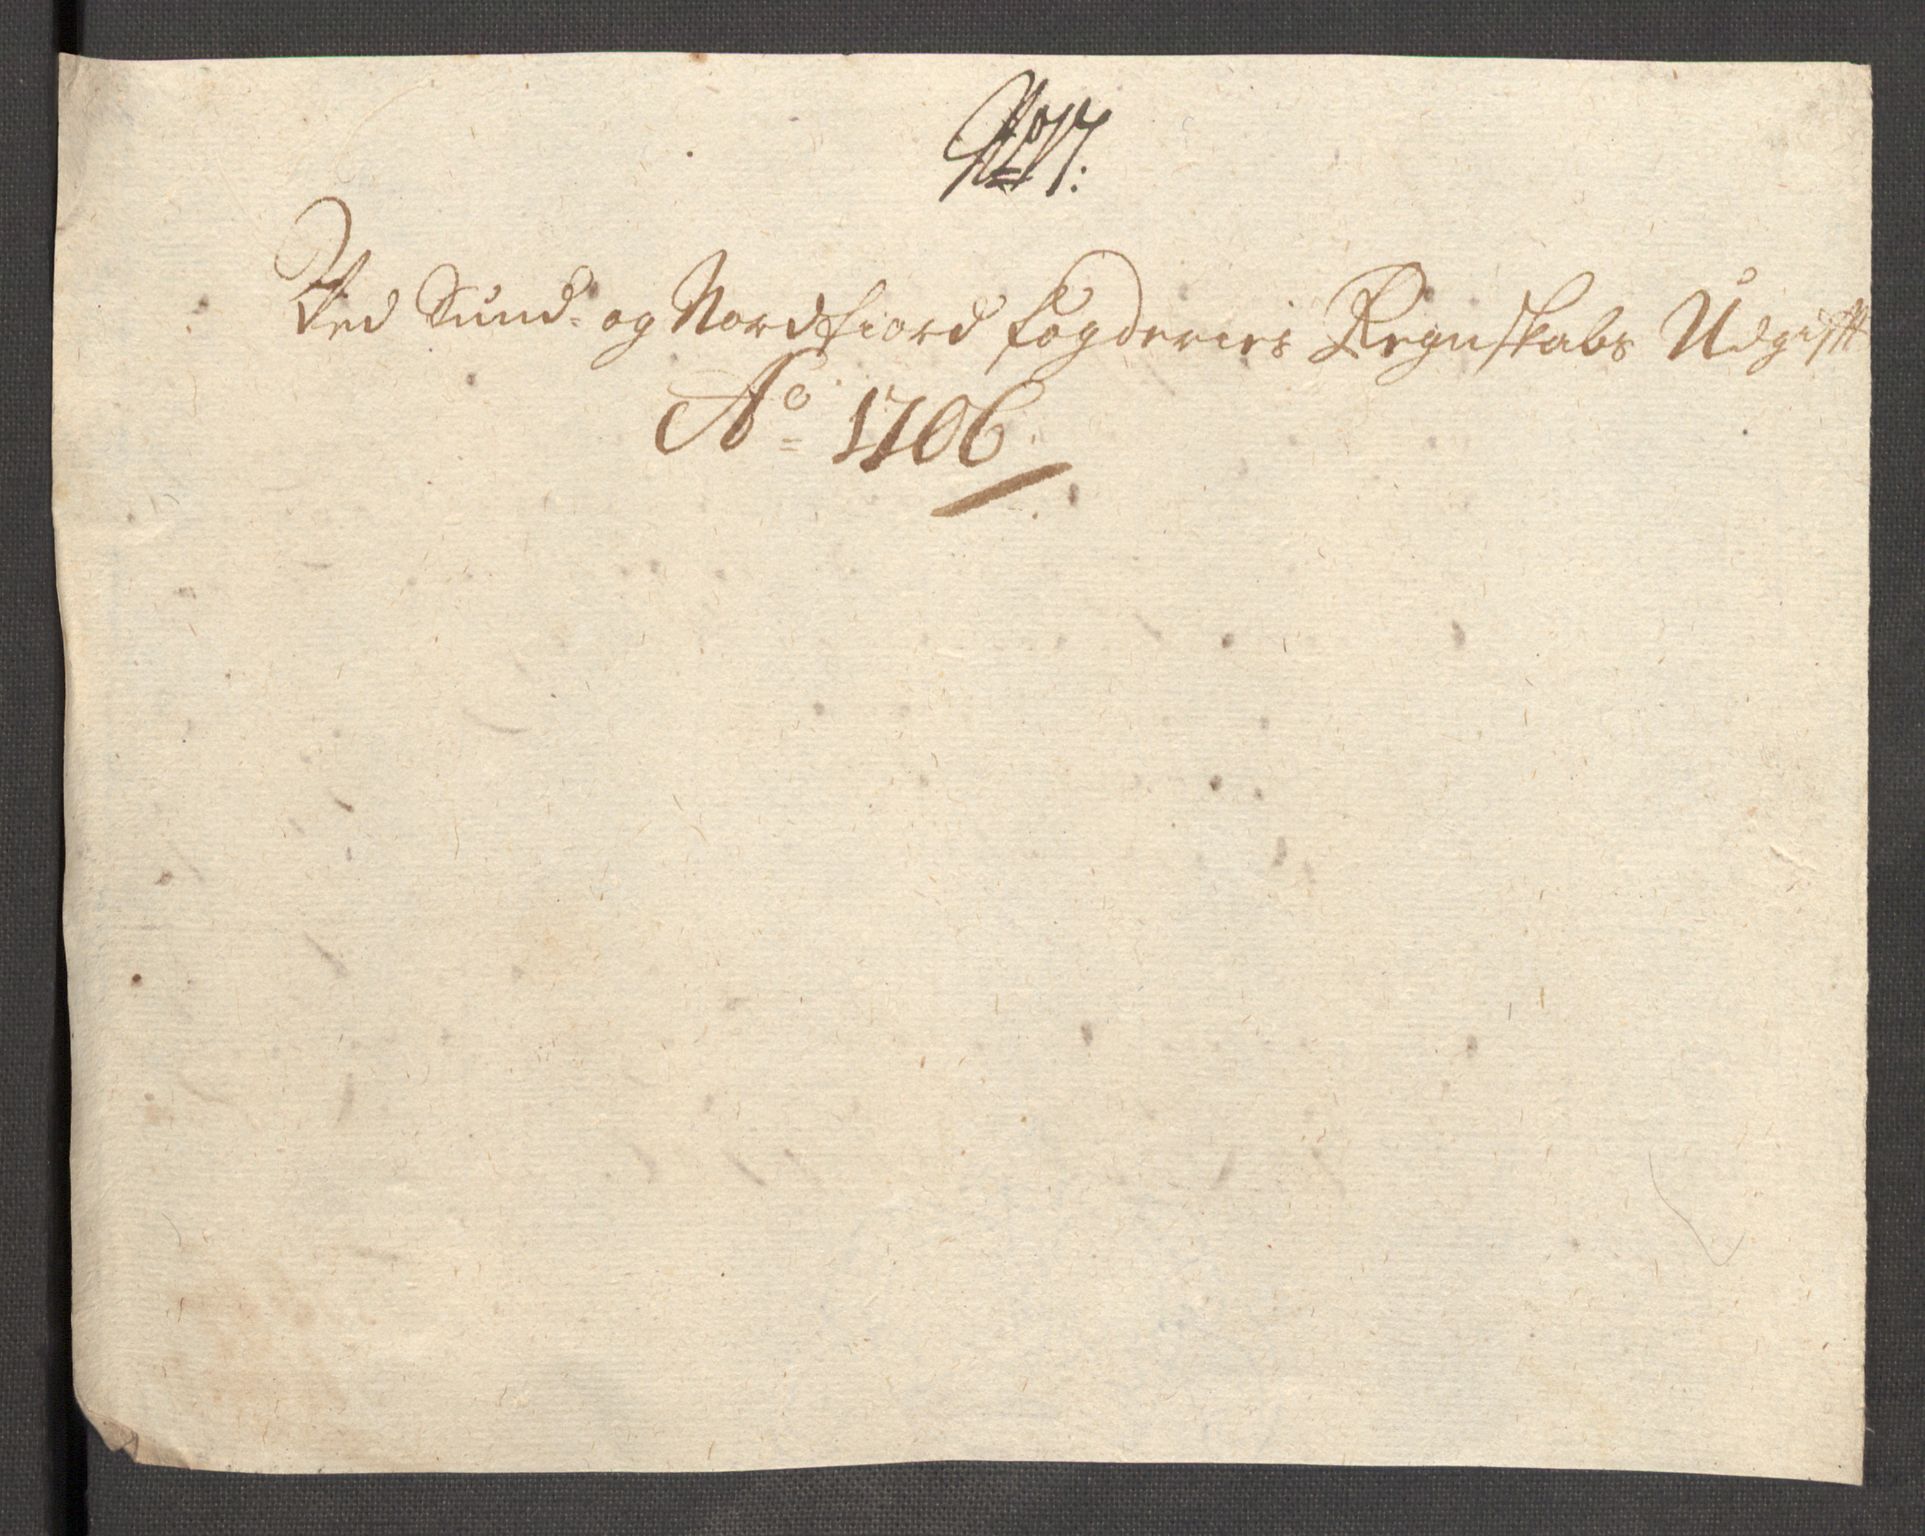 No 17:
Ved Sund- og Nordfiord fogderies Regnskabs Udgifft
Ao 1706